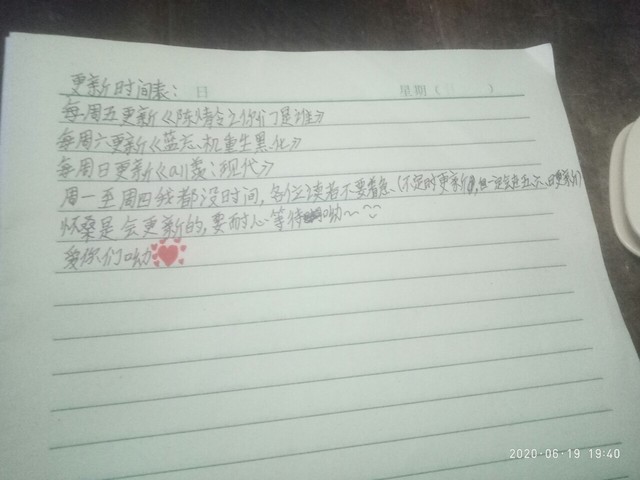 日 星期( )
更新时间表：
每周五更新《陈情令之你们是谁》
每周六更新《蓝忘机重生黑化》
每周日更新《all羡：现代》
周一至周四我都没时间，各位读者不要着急、(不定时更新，但一定会在五、六、日更新)
怀桑是会更新的，要耐心等待呦～
爱你们呦
2020-06-19 19:40